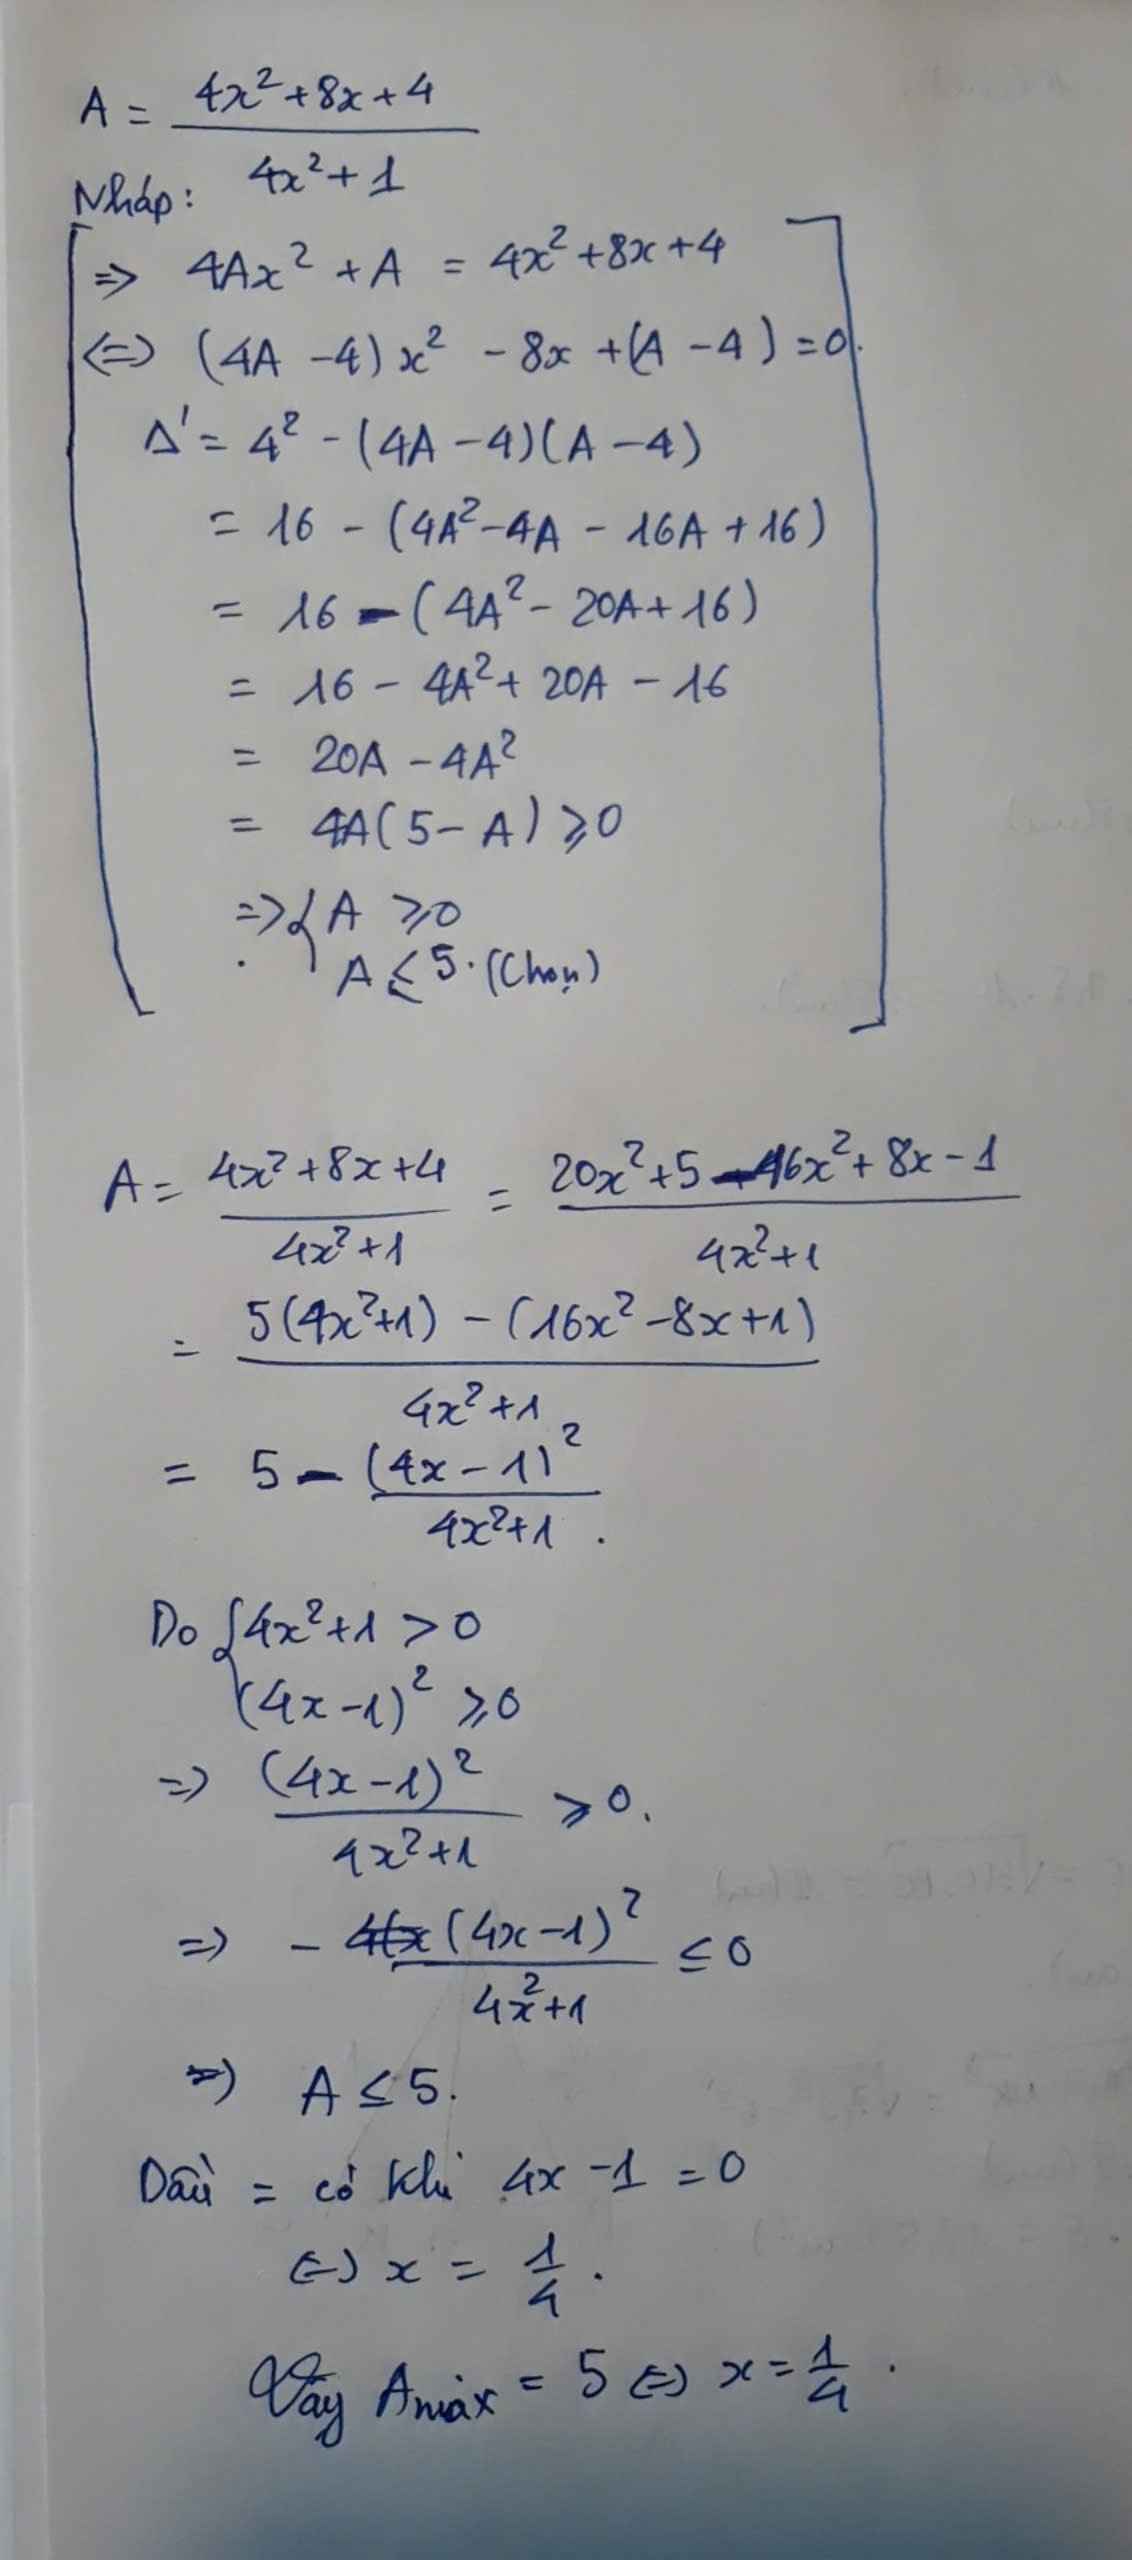 A = (4x² + 8x + 4) / (4x² + 1)
Nháp:
=> 4Ax² + A = 4x² + 8x + 4
<=> (4A - 4)x² - 8x + (A - 4) = 0.
Δ' = 4² - (4A - 4)(A - 4)
= 16 - (4A² - 4A - 16A + 16)
= 16 - (4A² - 20A + 16)
= 16 - 4A² + 20A - 16
= 20A - 4A²
= 4A(5 - A) ⩾ 0
=> { A ⩾ 0
A ⩽ 5. (Chọn)
A = (4x² + 8x + 4) / (4x² + 1) = (20x² + 5 - 16x² + 8x - 1) / (4x² + 1)
= (5(4x² + 1) - (16x² - 8x + 1)) / (4x² + 1)
= 5 - (4x - 1)² / (4x² + 1).
Do { 4x² + 1 > 0
(4x - 1)² ⩾ 0
=> (4x - 1)² / (4x² + 1) ⩾ 0.
=> - (4x - 1)² / (4x² + 1) ≤ 0
=> A ≤ 5.
Dấu = có khi 4x - 1 = 0
<=> x = 1/4.
Vậy Amax = 5 <=> x = 1/4.